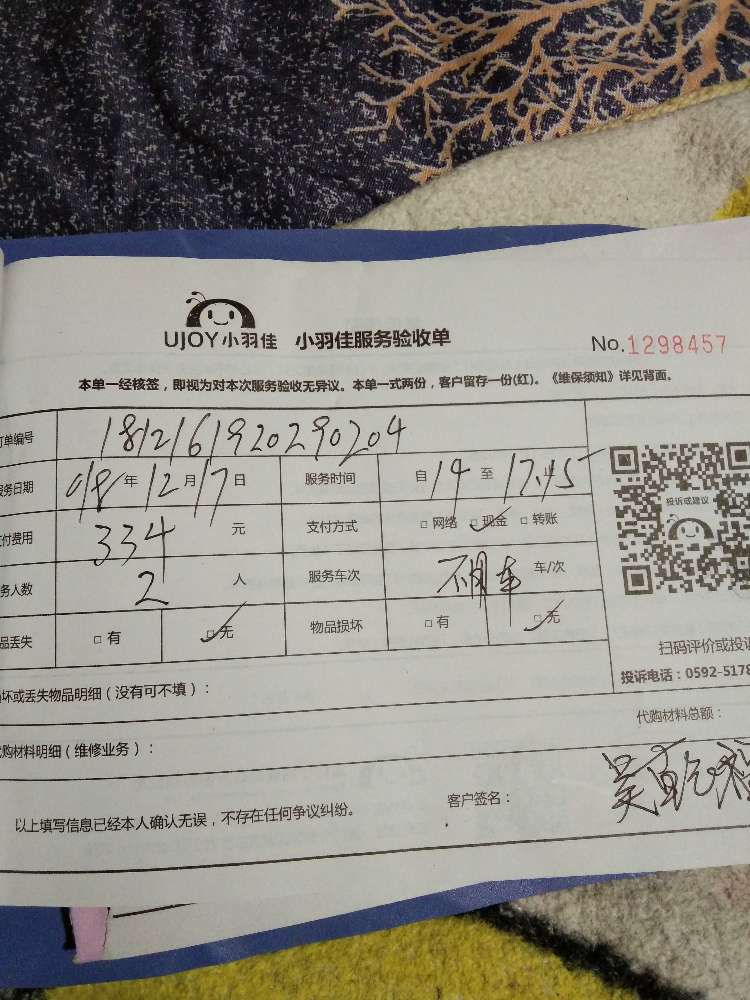 UJOY小羽佳 小羽佳服务验收单 No.1298457
本单一经核签，即视为对本次服务验收无异议。本单一式两份，客户留存一份(红)。《维保须知》详见背面。
订单编号 181216190290204
服务日期 018年12月17日 服务时间 自14至17.15止
支付费用 334元 支付方式 □网络 □现金 □转账
务人数 2人 服务车次 不用车 车/次
品丢失 □有 □无 物品损坏 □有 □无
投诉或建议
扫码评价或投诉
投诉电话：0592-5178
损坏或丢失物品明细（没有可不填）：
代购材料总额：
代购材料明细（维修业务）：
以上填写信息已经本人确认无误，不存在任何争议纠纷。 客户签名：吴